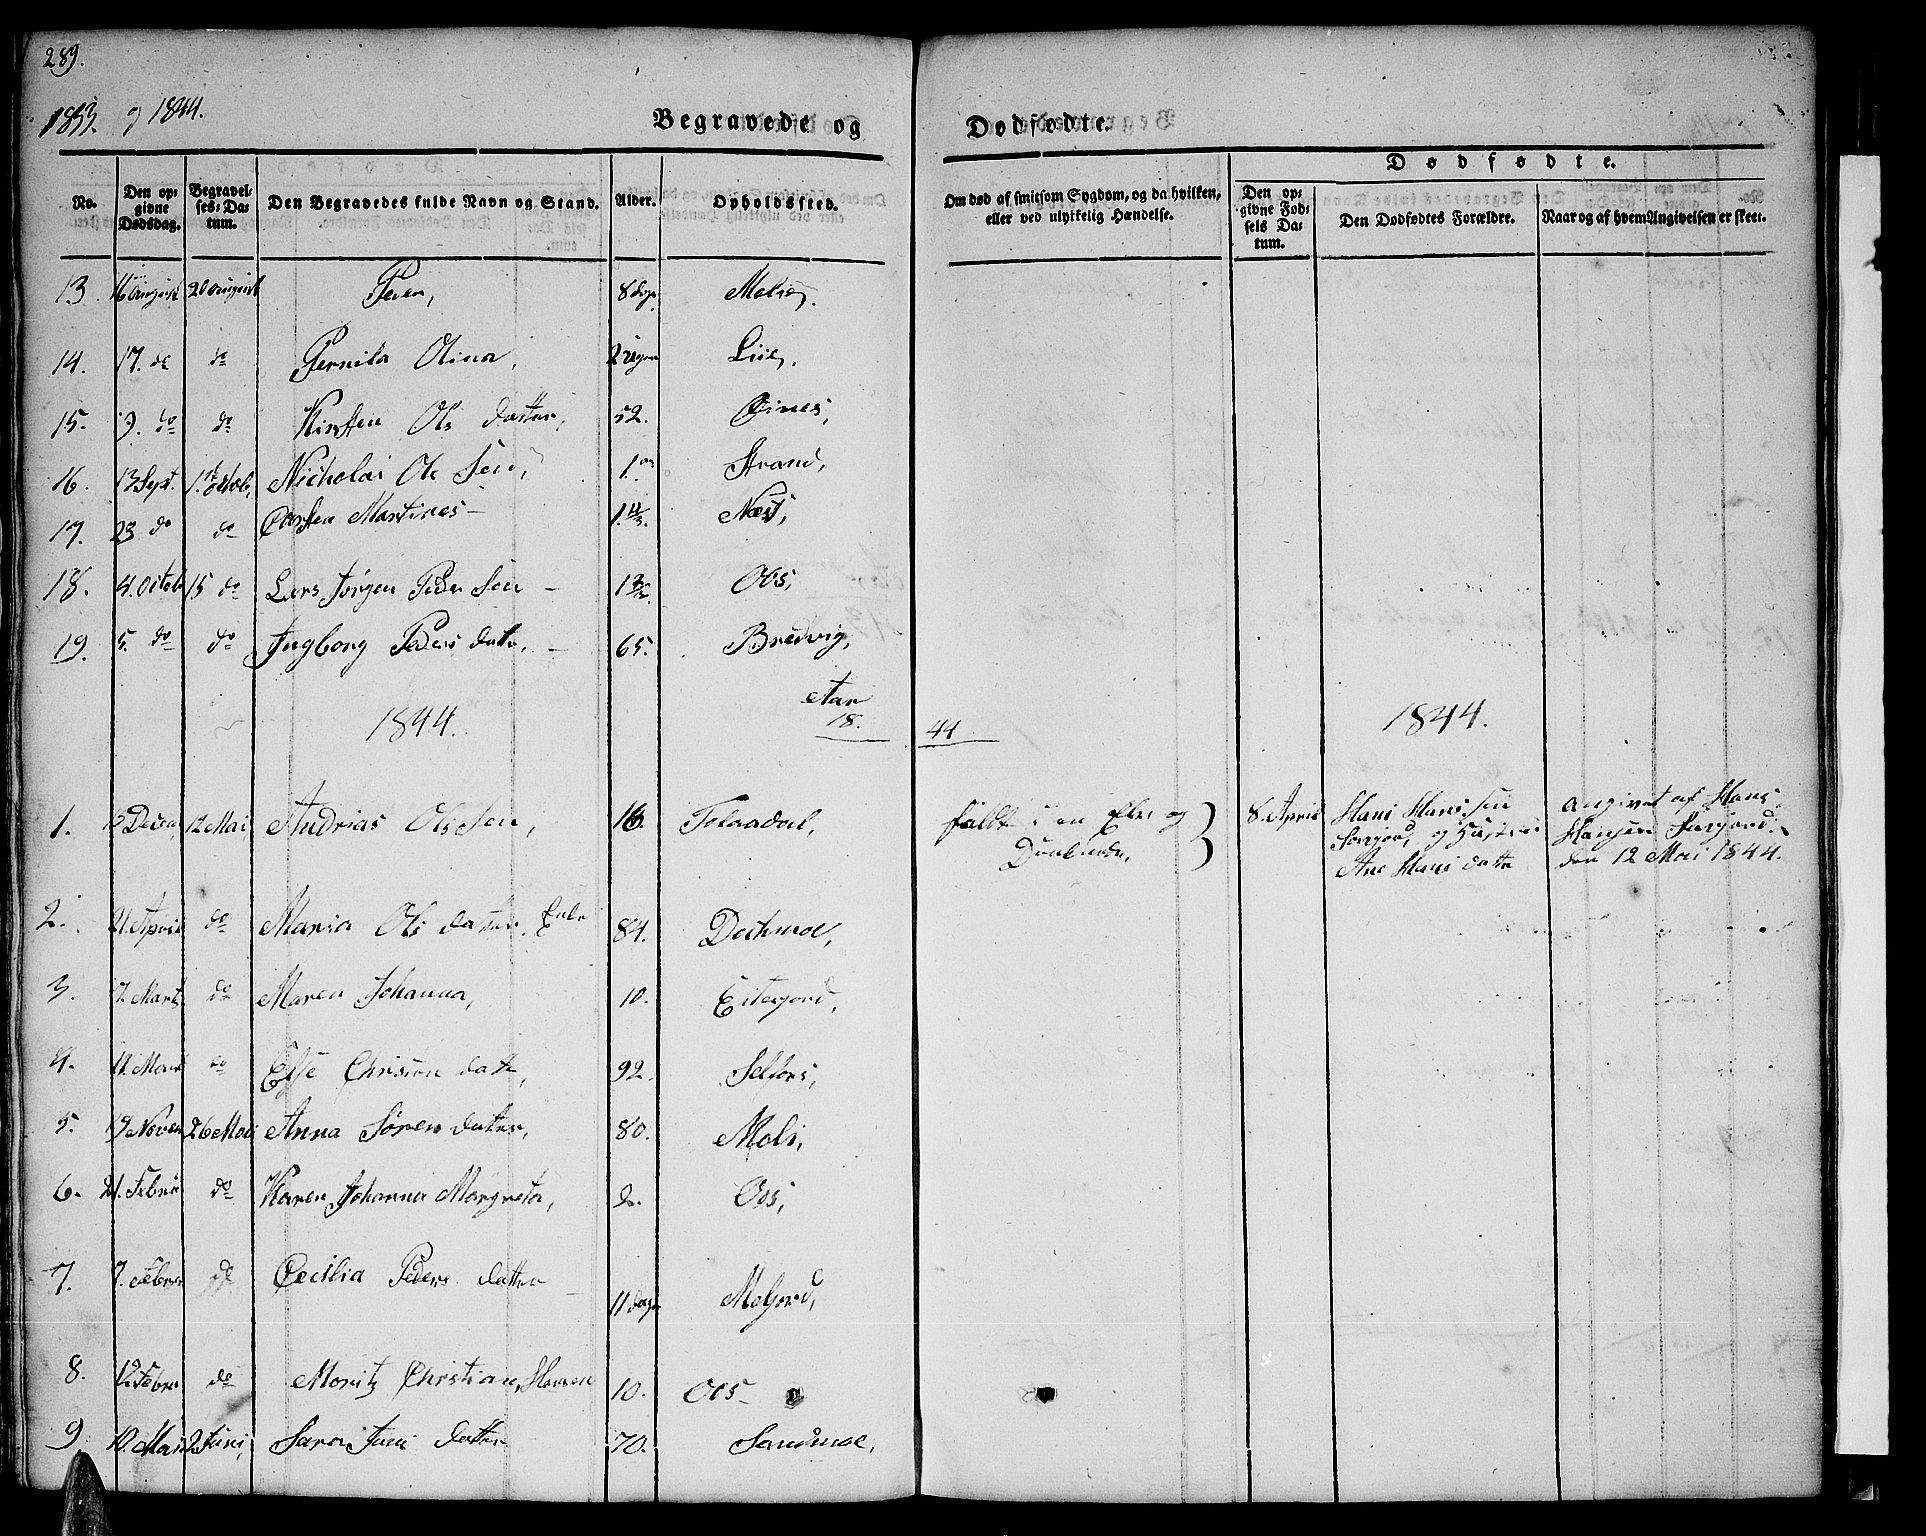 289.
1853. og 1844.
Begravede og Dødfødte.
Dødfødte.
No.
Den opgivne Dødsdag.
Begravelses-Datum.
Den Begravedes fulde Navn og Stand.
Alder.
Opholdssted.
Om død af smitsom Sygdom, og da hvilken, eller ved ulykkelig Hændelse.
Den opgivne Fødsels Datum.
Den Dødfødtes Forældre.
Naar og af hvem Angivelsen er skeet.
13. 16 August 20 August Peder, 8 dage
14. 17. do do Pernila Olina, 2 Liie,
15. 9. do do Kirsten Ols datter, 52. Øines,
16. 13 Sept. 1. Octob. Nicholai Ols Sen, 1. Strand,
17. 23 do do Martines Næst,
18. 4. Octob 15 do Lars Jørgen Peder Sen Oos,
19. 5. do do Ingborg Peders datter, 65. Bredvig,
Aar
1844. 18. 44 1844.
1. Decem 12 Mai Andrias Ols Sen, Tolaadal, faldt i en Elv og Druknede, 8. April Hans Hans Sen Sørgjord, og Hustrue Ane Hans datter angivet af Hans Hansen Sørgjord. den 12 Mai 1844.
2. 21. April do Maria Ols datter, Enke 84. Dochmoe,
3. 7. Marts do Maren Johanna, 10. Eitergjord,
4. 11. Marts do Else Christen datter, 92. Selfors,
5. 19 Novem 26 Mai Anna Søren datter, 80. Moli,
6. 21. Febru do Karen Johanna Margreta, 2. Oos,
7. 7. Febru do Cecilia Peders datter 11 dage Meljord,
8. 12 Febru do Moritz Christian Hansen 10. Oos
9 10. Mai 2 Juni, Sara Jens datter 70. Sandmoe,